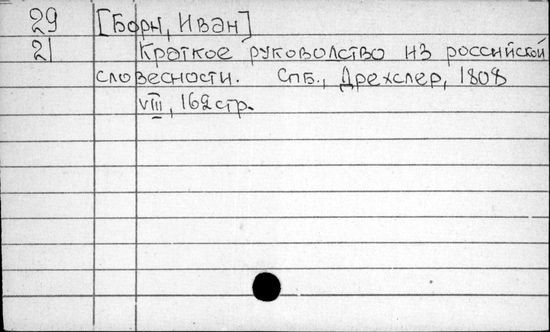 29 [Борн, Иван]
21 Краткое руководство из российской
словесности. Спб., Дрехслер, 1808
VIII, 162 стр.